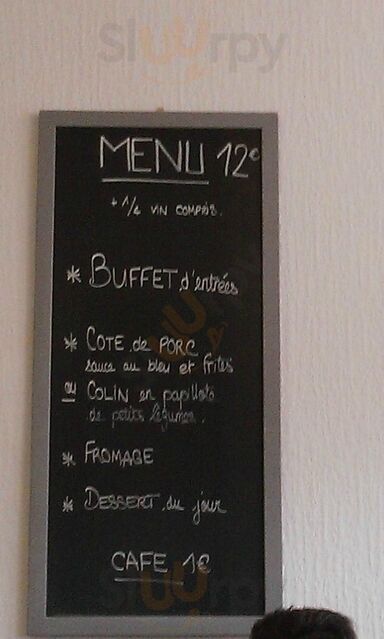 Sluurpy
MENU 12€
+ 1/4 VIN COMPRIS.
* BUFFET d'entrées
* COTE de PORC
sauce au bleu et frites
ou COLIN en papillote
de petits légumes.
* FROMAGE
* DESSERT du jour
CAFE 1€